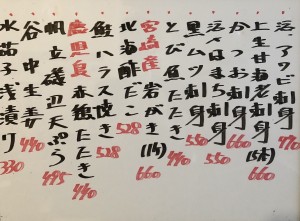 活アワビ刺身 770
上生甘老刺身 (5本) 660
かつお刺身 660
活〆はまち刺身 550
黒ムツ刺身 550
とび魚たたき 440
宮崎産 岩がき (1ヶ) 660
北海酢だこ 528
鮭ハラス焼き 528
鹿児島 赤鶏たたき 440
帆立磯辺天ぷら 495
谷中生姜 440
水茄子浅漬け 330